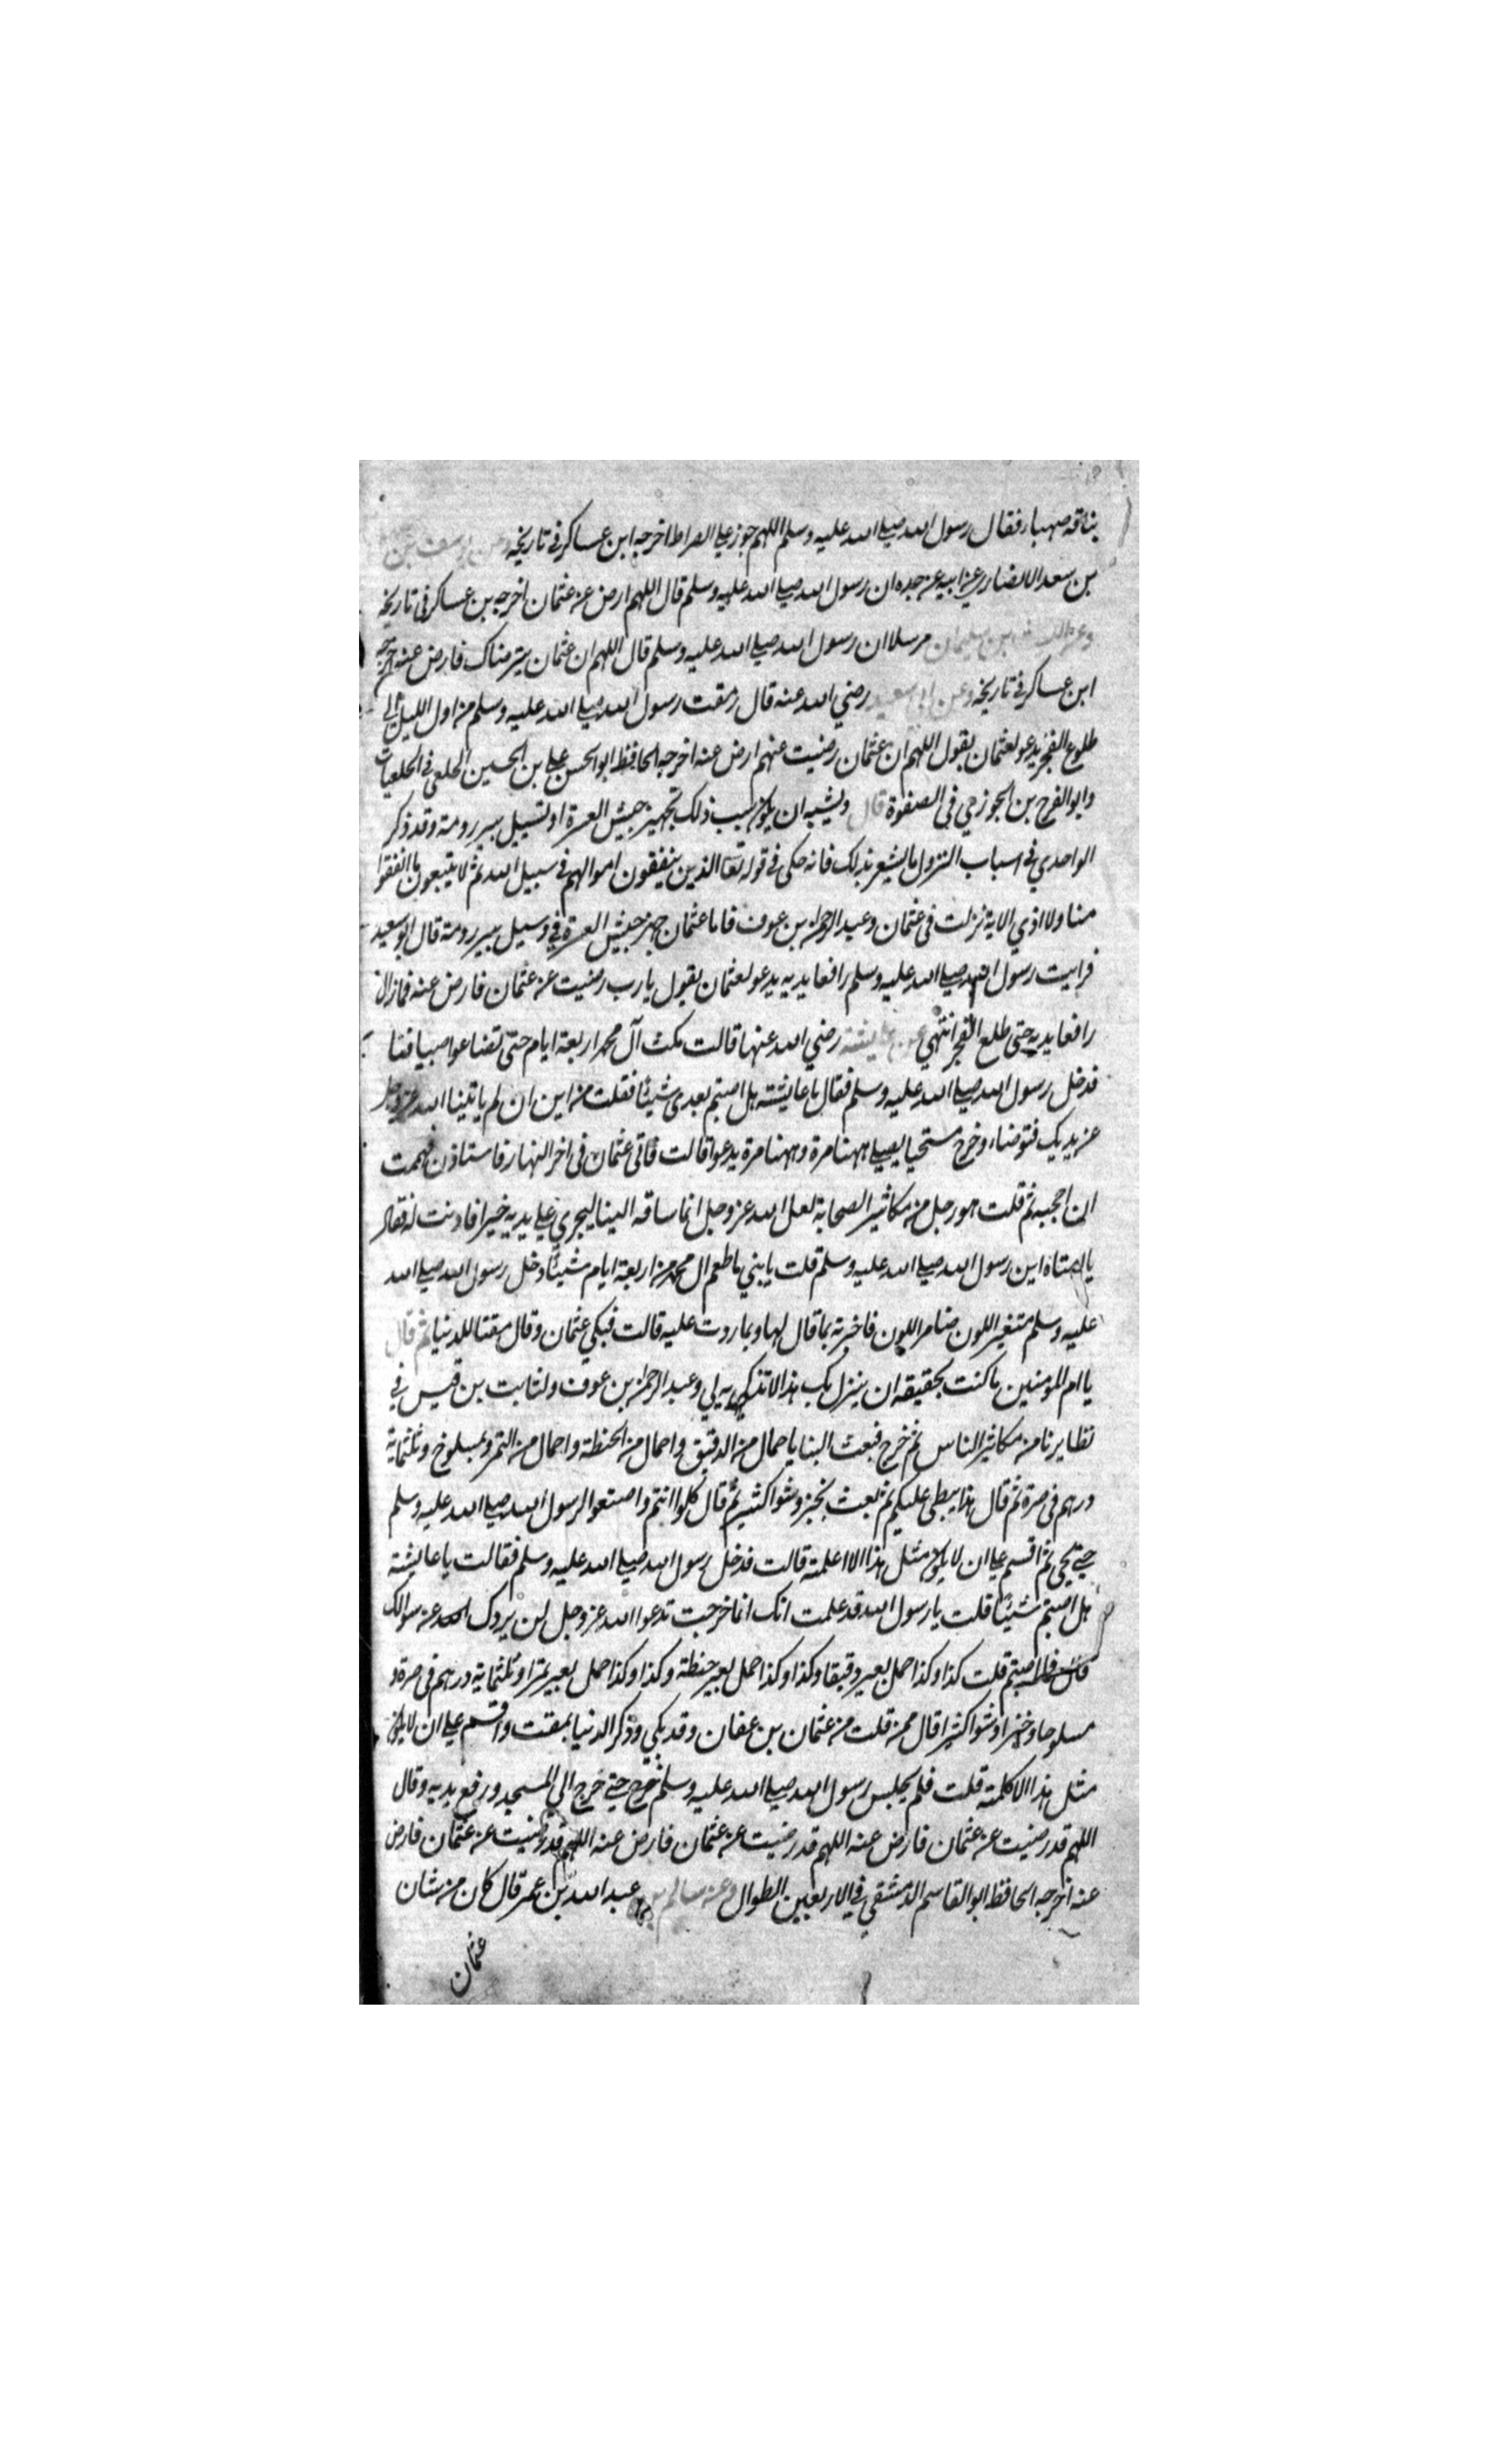 بناقه صهباء فقال رسول الله صلى الله عليه وسلم اللهم جوز علي الصراط اخرجه ابن عساكر في تاريخه وعن يوسف بن
بن سعد الانصاري عن ابيه عن جده ان رسول الله صلى الله عليه وسلم قال اللهم ارض عن عثمان اخرجه بن عساكر في تاريخه
وعن ليث بن سليمان مرسلا ان رسول الله صلى الله عليه وسلم قال اللهم ان عثمان يترضاك فارض عنه اخرجه
ابن عساكر في تاريخه وعن ابي سعيد رضي الله عنه قال رمقت رسول الله صلى الله عليه وسلم من اول الليل الي
طلوع الفجر يدعو لعثمان يقول اللهم ان عثمان رضيت عنهم ارض عنه اخرجه الحافظ ابو الحسن علي بن الحسين الخلعي في الخلعيات
وابو الفرج بن الجوزي في الصفوة قال ويشبه ان يكون سبب ذلك تجهيز جيش العسرة او تسبيل بير رومة وقد ذكر
الواحدي في اسباب النزول ما يشعر بذلك فانه حكى في قوله تعا الذين ينفقون اموالهم في سبيل الله ثم لا يتبعون ما انفقوا
منا ولا اذي الاية نزلت في عثمان وعبد الرحمن بن عوف فاما عثمان جهز جيش العسرة في وسبل بير رومة قال ابو سعيد
فرايت رسول الله صلى الله عليه وسلم رافعا يديه يدعو لعثمان يقول يا رب رضيت عن عثمان فارض عنه فما زال
رافعا يديه حتى طلع الفجر انتهي عن عايشة رضي الله عنها قالت مكث آل محمد اربعة ايام حتى تضاعوا صبيافنا
فدخل رسول الله صلى الله عليه وسلم فقال يا عايشة هل اصبتم بعدي شيئا فقلت من اين ان لم ياتينا الله عز وجل
عن يديك فتوضاء وخرج مستحيا يصلي ههنا مرة وههنا مرة يدعوا قالت فاتى عثمان في اخر النهار فاستاذن فهممت
ان احجبه ثم قلت هو رجل من مكاثير الصحابة لعل الله عز وجل انما ساقه الينا ليجري علي يديه خيرا فاذنت له فقال
يا امتاه اين رسول الله صلى الله عليه وسلم قلت يا بني ما طعم ال محمد من اربعة ايام شيئا دخل رسول الله صلى الله
عليه وسلم متغير اللون ضامر اللون فاخبرته بما قال لها وبما ردت عليه قالت فبكي عثمان وقال مقتا للدنيا ثم قال
يا ام المومنين ما كنت بحقيقه ان ينزل بك هذا لا تذكريه لي وعبد الرحمن بن عوف ولثابت بن قيس في
نظايرنا من مكاثير الناس ثم خرج فبعث الينا باحمال من الدقيق واحمال من الحنطة واحمال من التمر وبمسلوخ وثلثماية
درهم في صرة ثم قال هذا يبطي عليكم ثم بعث بخبز وشوا كثير ثم قال كلوا انتم واصنعوا لرسول الله صلى الله عليه وسلم
حتى يجي ثم اقسم علي ان لا يكون مثل هذا الا اعلمته قالت فدخل رسول الله صلى الله عليه وسلم فقالت يا عايشة
هل اصبتم شيئا قلت يا رسول الله قد علمت انك انما خرجت تدعوا الله عز وجل لن يردك الله عن سوالك
قال فما اصبتم قلت كذا وكذا حمل بعير دقيقا وكذا وكذا حمل بعير حنطة وكذا وكذا حمل بعير تمرا وثلثماية درهم في صرة و
مسلوخا وخبزا وشوا كثيرا قال ممن قلت من عثمان بن عفان وقد بكي وذكر الدنيا بمقت واقسم علي ان لا يكون
مثل هذا الا كلمته قلت فلم يجلس رسول الله صلى الله عليه وسلم خرج حتى خرج الي المسجد ورفع يديه وقال
اللهم قد رضيت عن عثمان فارض عنه اللهم قد رضيت عن عثمان فارض عنه اللهم قد رضيت عن عثمان فارض
عنه اخرجه الحافظ ابو القاسم الدمشقي في الاربعين الطوال وعن سالم بن عبد الله بن عمر قال كان من شان
عثمان